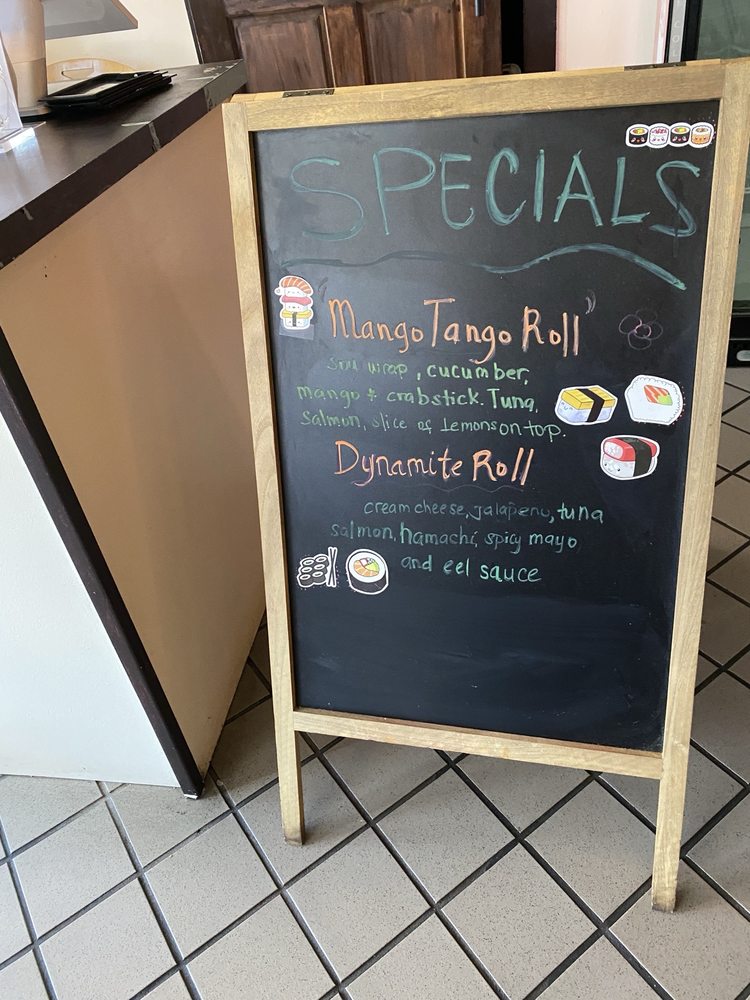 SPECIALS
"Mango Tango Roll"
Soy wrap, cucumber,
mango + crabstick. Tuna,
Salmon, slice of Lemons on top.
Dynamite Roll
cream cheese, jalapeno, tuna
salmon, hamachi, spicy mayo
and eel sauce